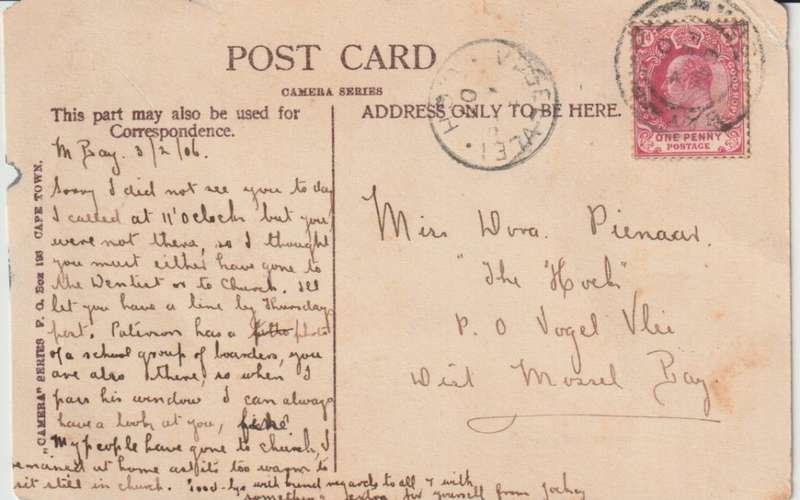 POST CARD
CAMERA SERIES
This part may also be used for
Correspondence.
ADDRESS ONLY TO BE HERE.
"CAMERA" SERIES P. O. Box 193 CAPE TOWN.
ONE PENNY
POSTAGE
VOGEL VLEI
M Bay. 3/2/06.
Sorry I did not see you to day
I called at 11 O'clock but you
were not there, so I thought
you must either have gone to
the Dentist or to Church. I'll
let you have a line by Thursday
post. Paterson has a photo
of a school group of boarders, you
are also there, so when I
pass his window I can always
have a look at you,
My people have gone to church, I
remained at home as it's too warm to
sit still in church. Good-bye with kind regards to all & with
something extra for yourself from Jockey
Miss Dora. Pienaar.
"The Hoek"
P. O Vogel Vlei
Dist Mossel Bay.